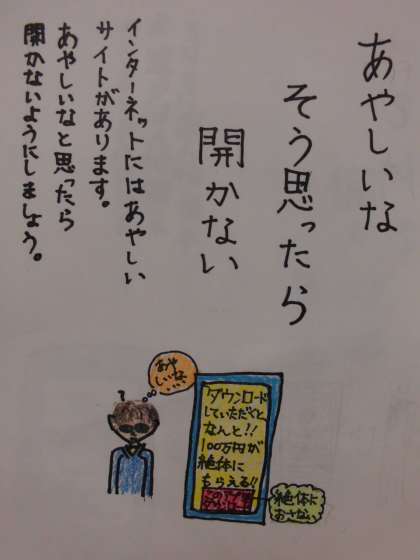 あやしいな
そう思ったら
開かない
インターネットにはあやしい
サイトがあります。
あやしいなと思ったら
開かないようにしましょう。
?
あや
しいな…
ダウンロード
していただくと
なんと!!
100万円が
絶体に
もらえる!!
絶体に
おさない